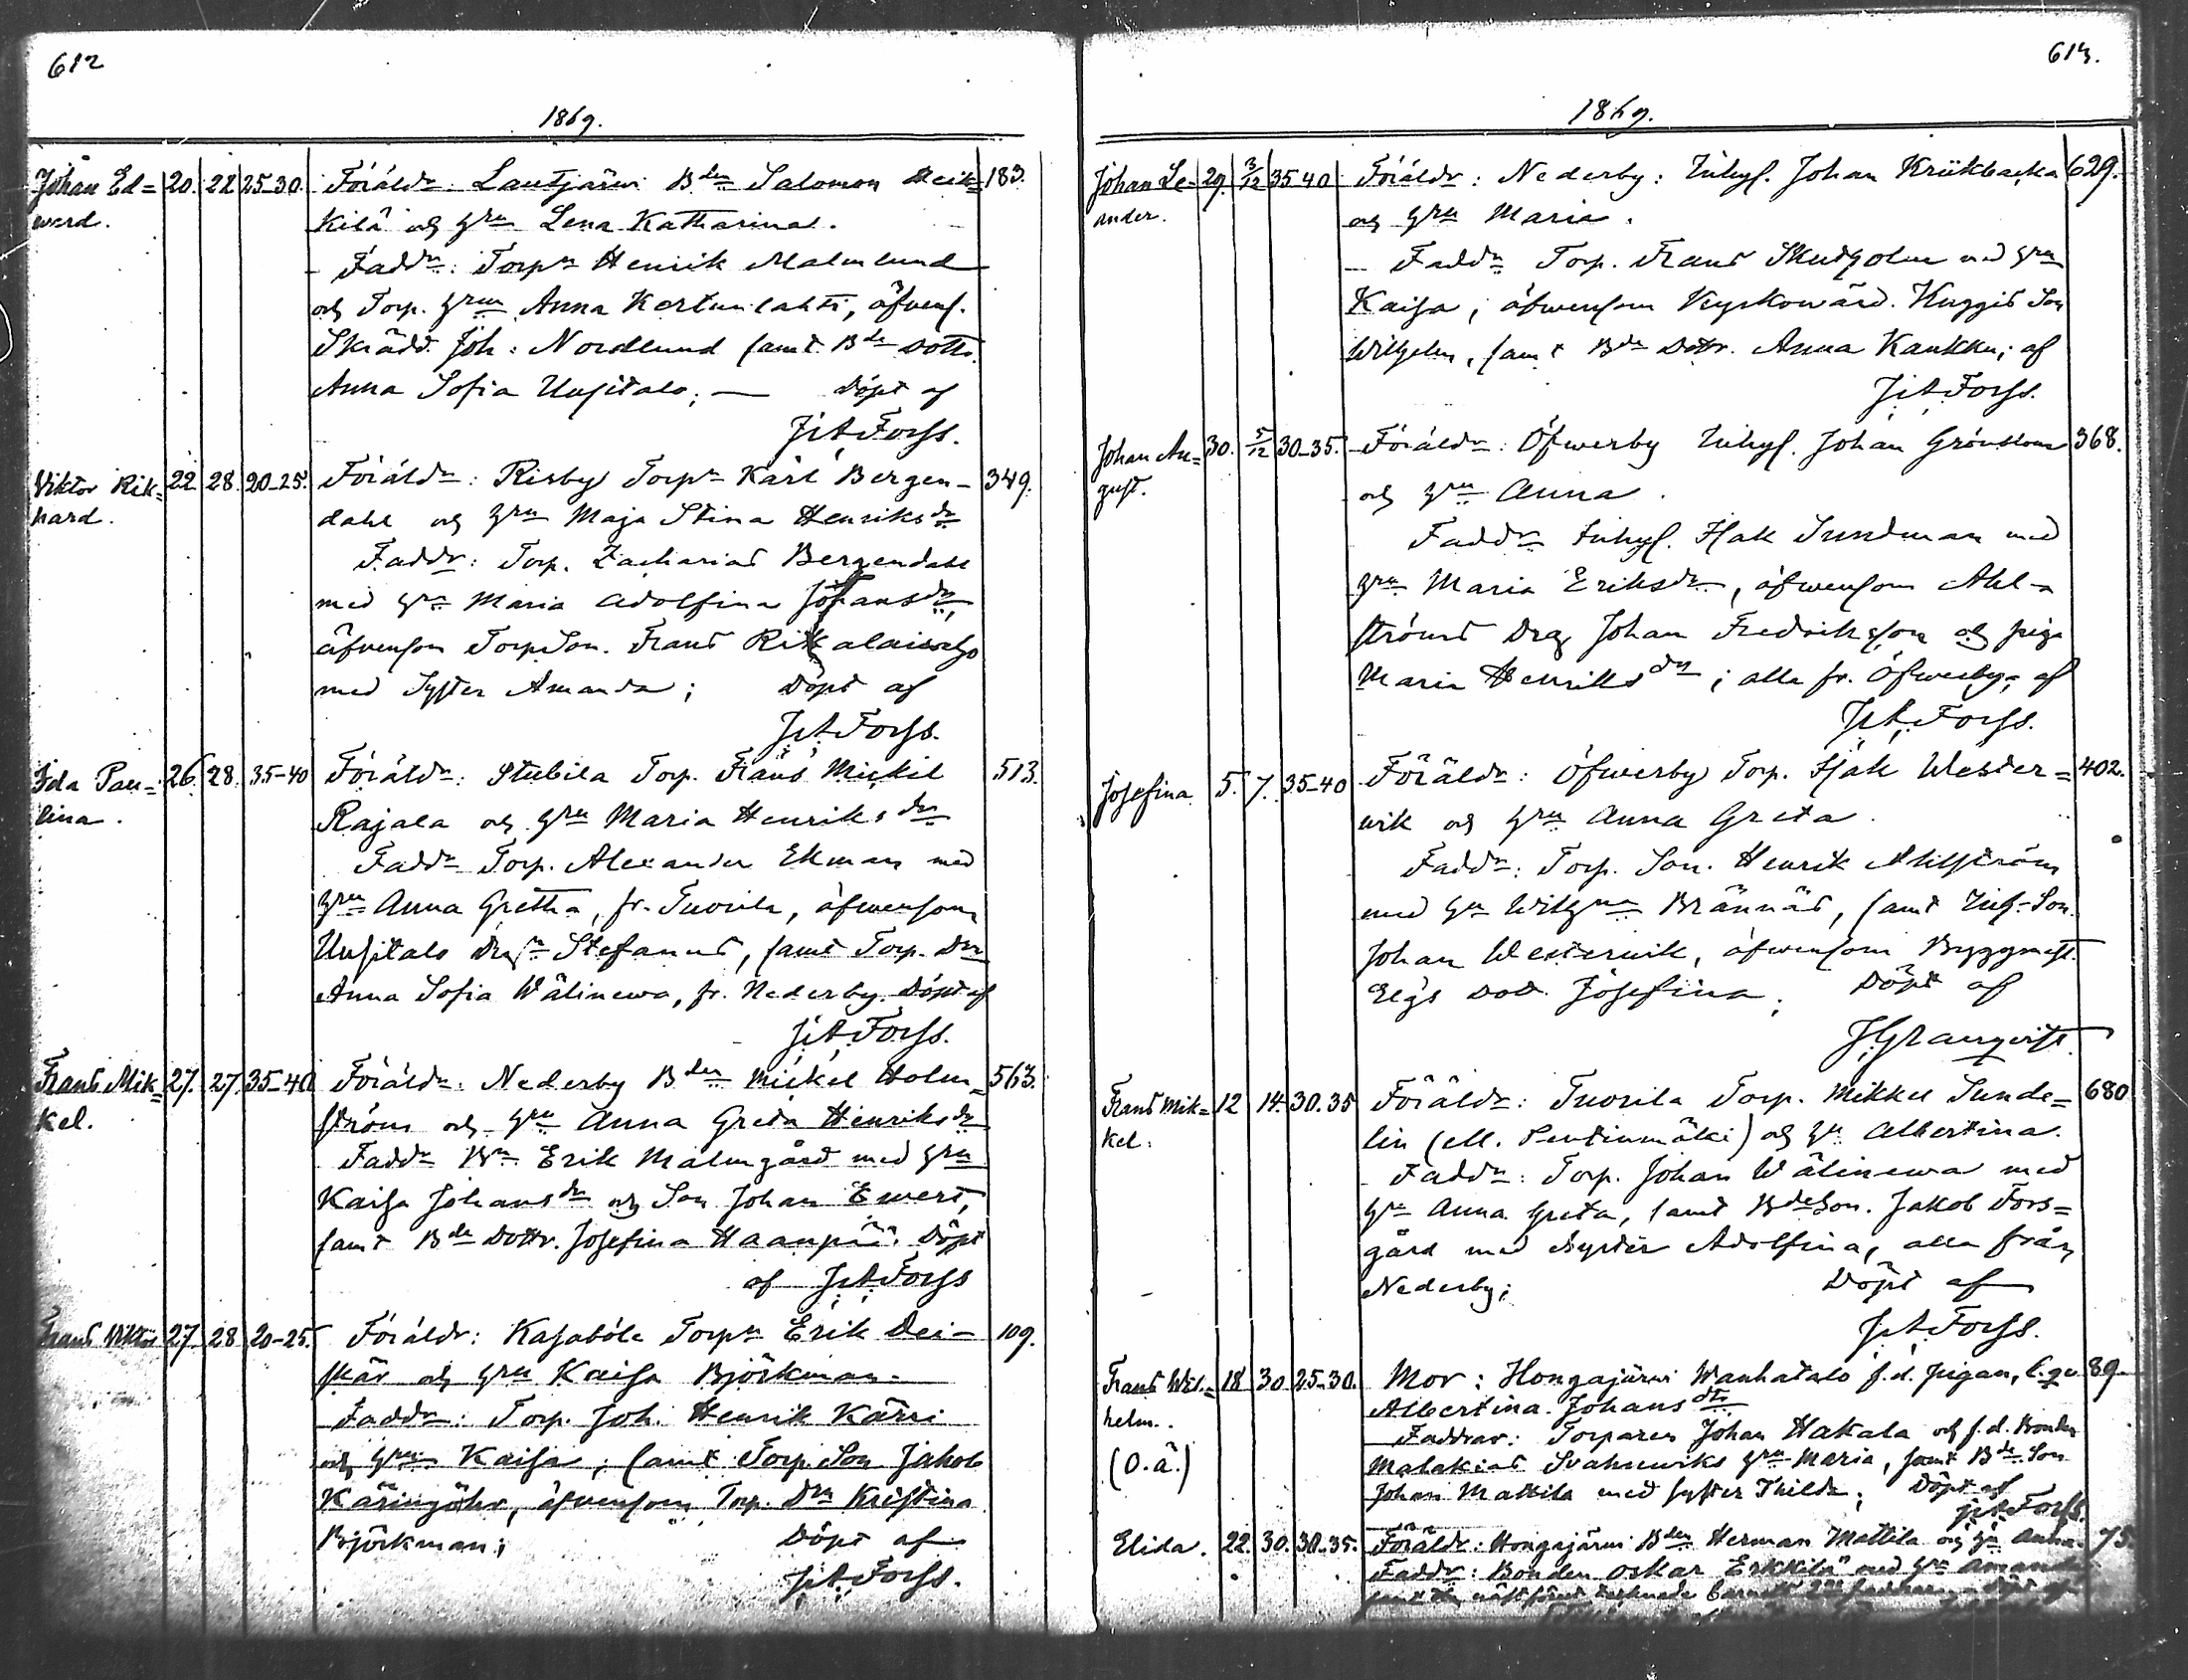 612
1869.
Johan Ed= 20. 22 25-30. Föräldr: Lautjärvi Bden Salomon Heik= 183.
ward. kilä och hru Lena Katharina.
Faddr: Torpn Henrik Malmlund
och Torp. hrun Anna Kertunlahti, äfvens.
Skrädd. Joh: Nordlund samt Bde Dottr.
Anna Sofia Uusitalo; — Döpt af
JAForss.
Viktor Rik= 22 28. 20-25. Föräldr: Risby Torpn Karl Bergen- 349.
hard. dahl och hru Maja Stina Henriksdr
Faddr: Torp. Zacharias Bergendahl
med hru Maria Adolfina Johansdr,
äfvensom Torp.Son. Frans
med Syster Amanda; Döpt af
JAForss.
Ida Pau= 26. 28. 35-40 Föräldr: Stubila Torp. Frans Mickil 513.
lina. Rajala och hru Maria Henriksdr
Faddr Torp. Alexander Ekman med
hru Anna Gretha, fr. Tuorila, äfwensom
Uusitalo Drgn Stefanus, samt Torp. Dtr
Anna Sofia Wälinewa, fr. Nederby. Döpt af
JAForss.
Frans Mik= 27. 27. 35-40 Föräldr: Nederby Bden Mickel Holm= 563.
kel. ström och hru Anna Greta Henriksdr
Faddr Bn Erik Malmgård med hru
Kaisa Johansdr och Son Johan Ewert,
samt Bde Dottr. Josefina Haanpää. Döpt
af JAForss
Frans Viktor 27. 28 20-25. Föräldr: Kasaböle Torpn Erik Dei- 109.
skär och hru Kaisa Björkman.
Faddr: Torp. Joh. Henrik Kärri
och hru Kaisa, samt Torp.Son Jakob
äfvensom Torp. Dtr Kristina
Björkman; Döpt af
JAForss.
613.
1869.
Johan Le- 29. 3/12 35-40 Föräldr: Nederby: Inhys. Johan Kriikbacka 629.
ander. och hru Maria.
Faddr Torp. Frans Skutholm med hru
Kaisa; äfwensom Kyrkowärd. Son
Wilhelm, samt Bde Dottr. Anna Kankku; af
JAForss.
Johan Au= 30. 5/12 30-35. Föräldr: Öfwerby Inhys. Johan Grönstrom 368.
gust. och hru Anna.
Faddr Inhys. Isak Sundman med
hru Maria Eriksdr, äfwensom Ahl-
ströms Drg Johan Fredriksson och piga
Maria Henriksdr; alla fr. Öfwerby; af
JAForss.
Josefina 5. 7. 35-40 Föräldr: Öfwerby Torp. Isak Wester= 402.
wik och hru Anna Greta.
Faddr: Torp. Son. Henrik Ahlström
med hru Wilhna Brännäs, samt Inh. Son
Johan Westerwik, äfwensom Byggmäst.
Dott. Josefina; Döpt af
JGranqvist.
Frans Mik= 12 14. 30.35 Föräldr: Tuorila Torp. Mikkel Sunde= 680
kel. lin (ell. Pentinmäki) och hr. Albertina.
Faddr: Torp. Johan Wälinewa med
hru Anna Greta, samt BdeSon. Jakob Fors=
gård med Syster Adolfina, alla från
Nederby; Döpt af
JAForss.
Frans Wil= 18 30 25-30. Mor: Hongajärvi Wanhatalo f.d. pigan, l.qv. 89.
helm. Albertina Johansdtr
(O.ä.) Faddrar: Torparen Johan Hakala och f.d. Bonden
Malakias hru Maria, samt Bde Son
Johan Mattila med syster Thilda; Döpt af
JAForss.
Elida. 22. 30. 30-35. Föräldr: Hongajärvi Bden Herman Mattila och hru Anna. 75.
Faddr: Bonden Oskar Erkkilä med hru Amanda